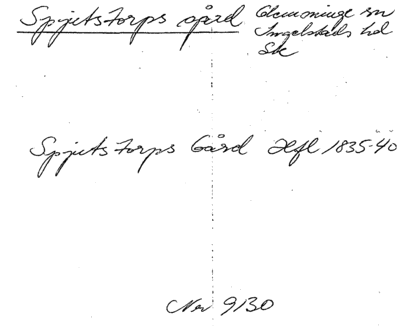 Spjutstorps gård
Glemminge sn
Ingelstads hd
Sk
Spjutstorps Gård Hfl 1835-40
Nov 9130